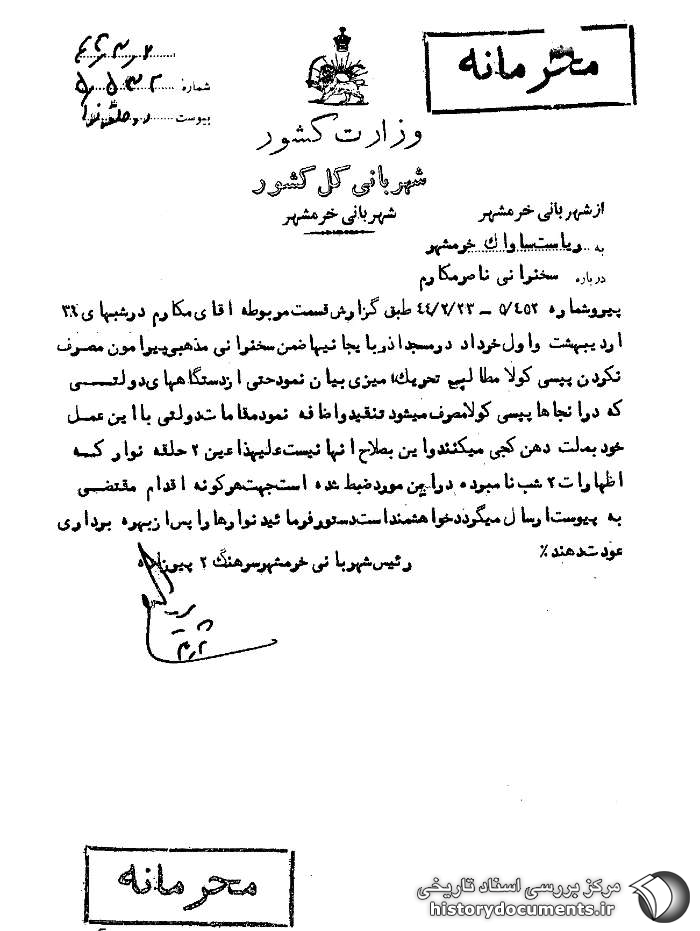 محرمانه
شماره ۵ر۵۳۲
پیوست
وزارت کشور
شهربانی کل کشور
شهربانی خرمشهر
از شهربانی خرمشهر
به ریاست ساواک خرمشهر
درباره سخنرانی ناصر مکارم
پیرو شماره ۵/۴۵۲ – ۴۴/۲/۲۳ طبق گزارش قسمت مربوطه اقای مکارم در شبهای ۳۱
اردیبهشت و اول خرداد در مسجد اذربایجانیها ضمن سخنرانی مذهبی پیرامون مصرف
نکردن پپسی کولا مطالب تحریک امیزی بیان نمود حتی از دستگاههای دولتی
که در انجاها پپسی کولا مصرف میشود تنقید و اضافه نمود مقامات دولتی با این عمل
خود بملت دهن کجی میکنند و این بصلاح انها نیست علیهذا عین ۲ حلقه نوار که
اظهارات ۲ شب نامبرده در این مورد ضبط شده است جهت هرگونه اقدام مقتضی
به پیوست ارسال میگردد خواهشمند است دستور فرمائید نوارها را پس از بهره برداری
عودت دهند ٪
رئیس شهربانی خرمشهر سرهنگ ۲
محرمانه
مرکز بررسی اسناد تاریخی
historydocuments.ir